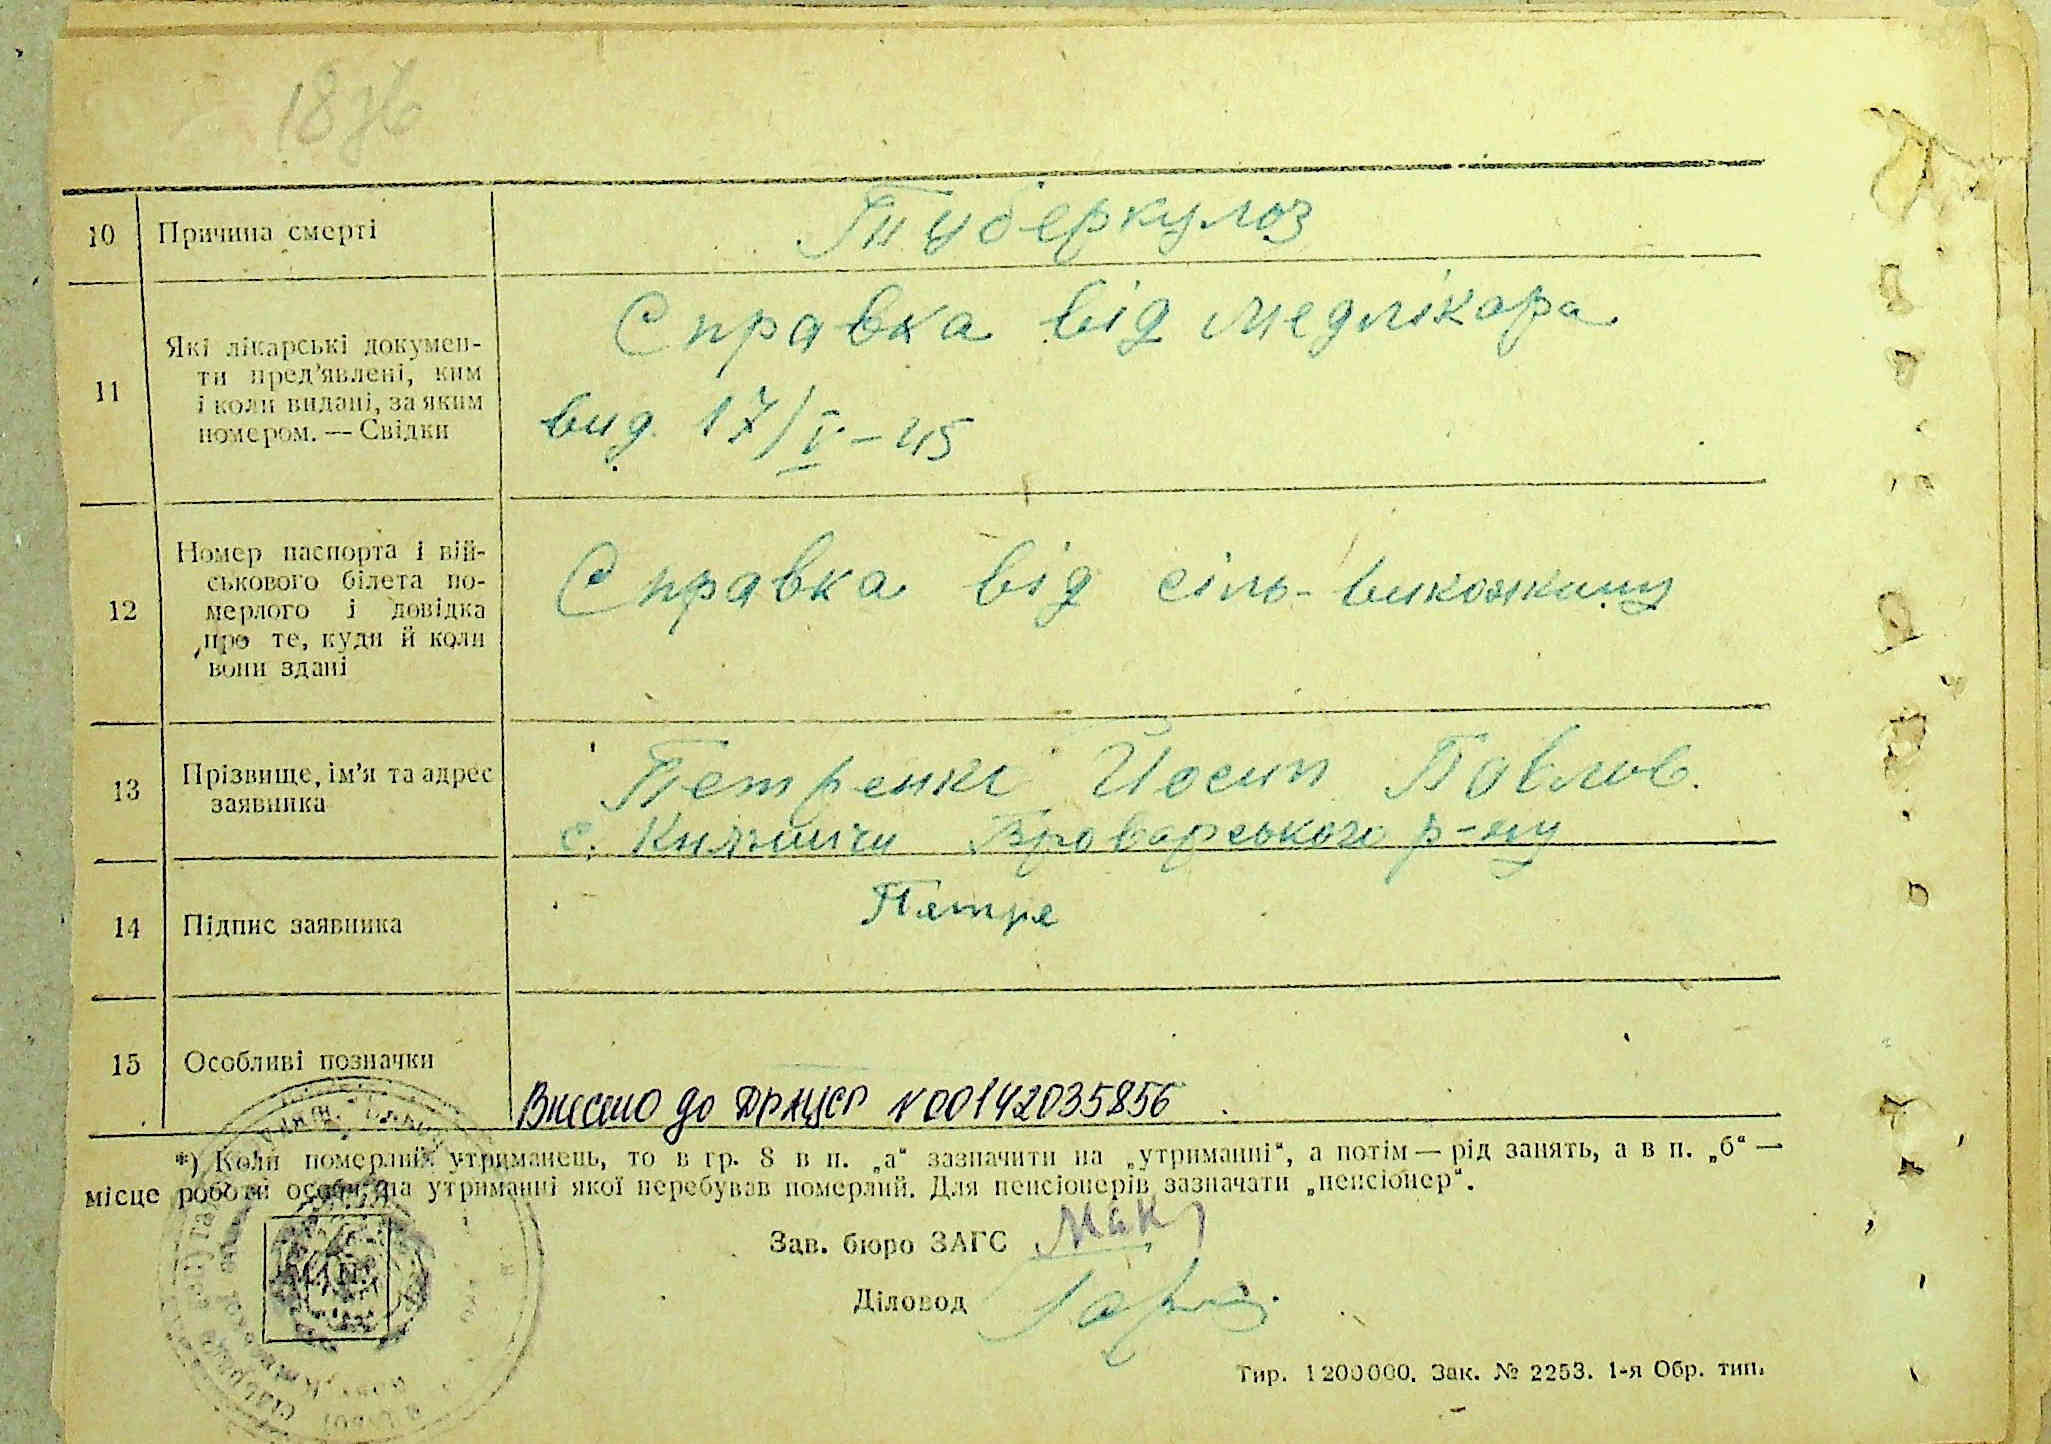 18 зв
10 Причина смерті Туберкулоз
11 Які лікарські докумен-
ти пред'явлені, ким
і коли видані, за яким
номером. — Свідки
Справка від медлікара
вид. 17/V-45
12 Номер паспорта і вій-
ськового білета по-
мерлого і довідка
про те, куди й коли
вони здані
Справка від сіль-виконкому
13 Прізвище, ім'я та адрес
заявника
Петренко Йосип Павлов.
с. Княжичи Броварського р-ну
14 Підпис заявника Петре
15 Особливі позначки
Внесено до ДРАЦСГ №00142035856
*) Коли померлий утриманець, то в гр. 8 в п. „а“ зазначити на „утриманні“, а потім — рід занять, а в п. „б“ —
місце роботи особи, на утриманні якої перебував померлий. Для пенсіонерів зазначати „пенсіонер“.
Зав. бюро ЗАГС
Діловод
Тир. 1200000. Зак. № 2253. 1-я Обр. тип.